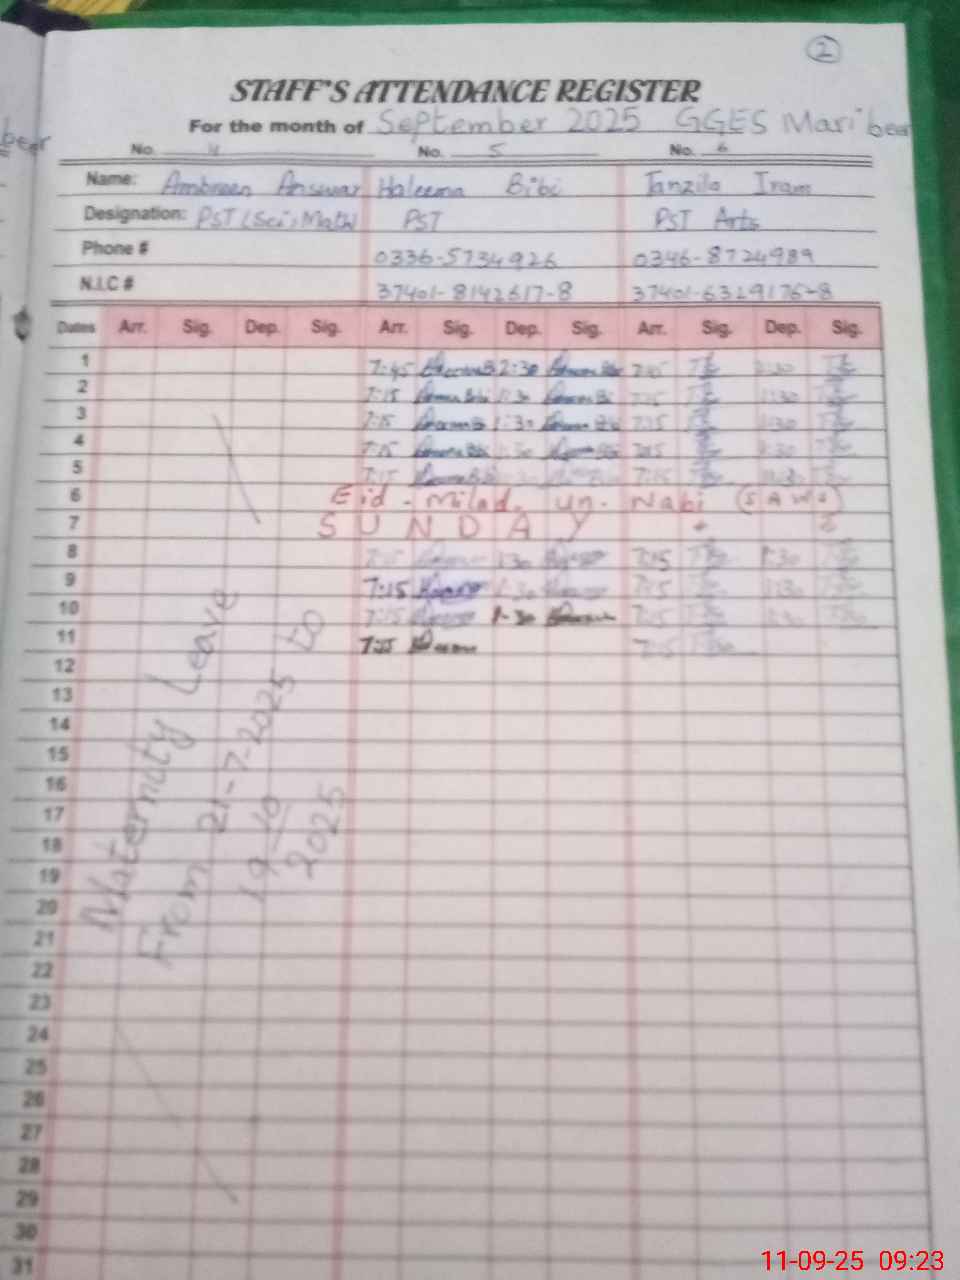 2
STAFF'S ATTENDANCE REGISTER
For the month of September 2025 GGES Mari beer
No. 4 No. 5 No. 6
Name: Ambreen Answar Haleema Bibi Tanzila Iram
Designation: PST (Sci, Math) PST PST Arts
Phone # 0336-5734926 0346-8724989
N.I.C # 37401-8142617-8 37401-6329176-8
Dates Arr. Sig. Dep. Sig. Arr. Sig. Dep. Sig. Arr. Sig. Dep. Sig.
1 7:45
2 7:15 1:30 7:15 1:30
3 7:15 1:30 7:15 1:30
4 7:15 1:30 7:15 1:30
5 7:15 7:15 1:30
6 Eid - Milad - un - Nabi (S A W S)
7 S U N D A Y
8 7:15 1:30 7:15 1:30
9 7:15 1:30 7:15 1:30
10 7:15 1:30 7:15 1:30
11 7:15 7:15
12
13
14
15
16
17
18
19
20
21
22
23
24
25
26
27
28
29
30
31
Maternity Leave
From 21-7-2025 to
19-10
2025
11-09-25 09:23